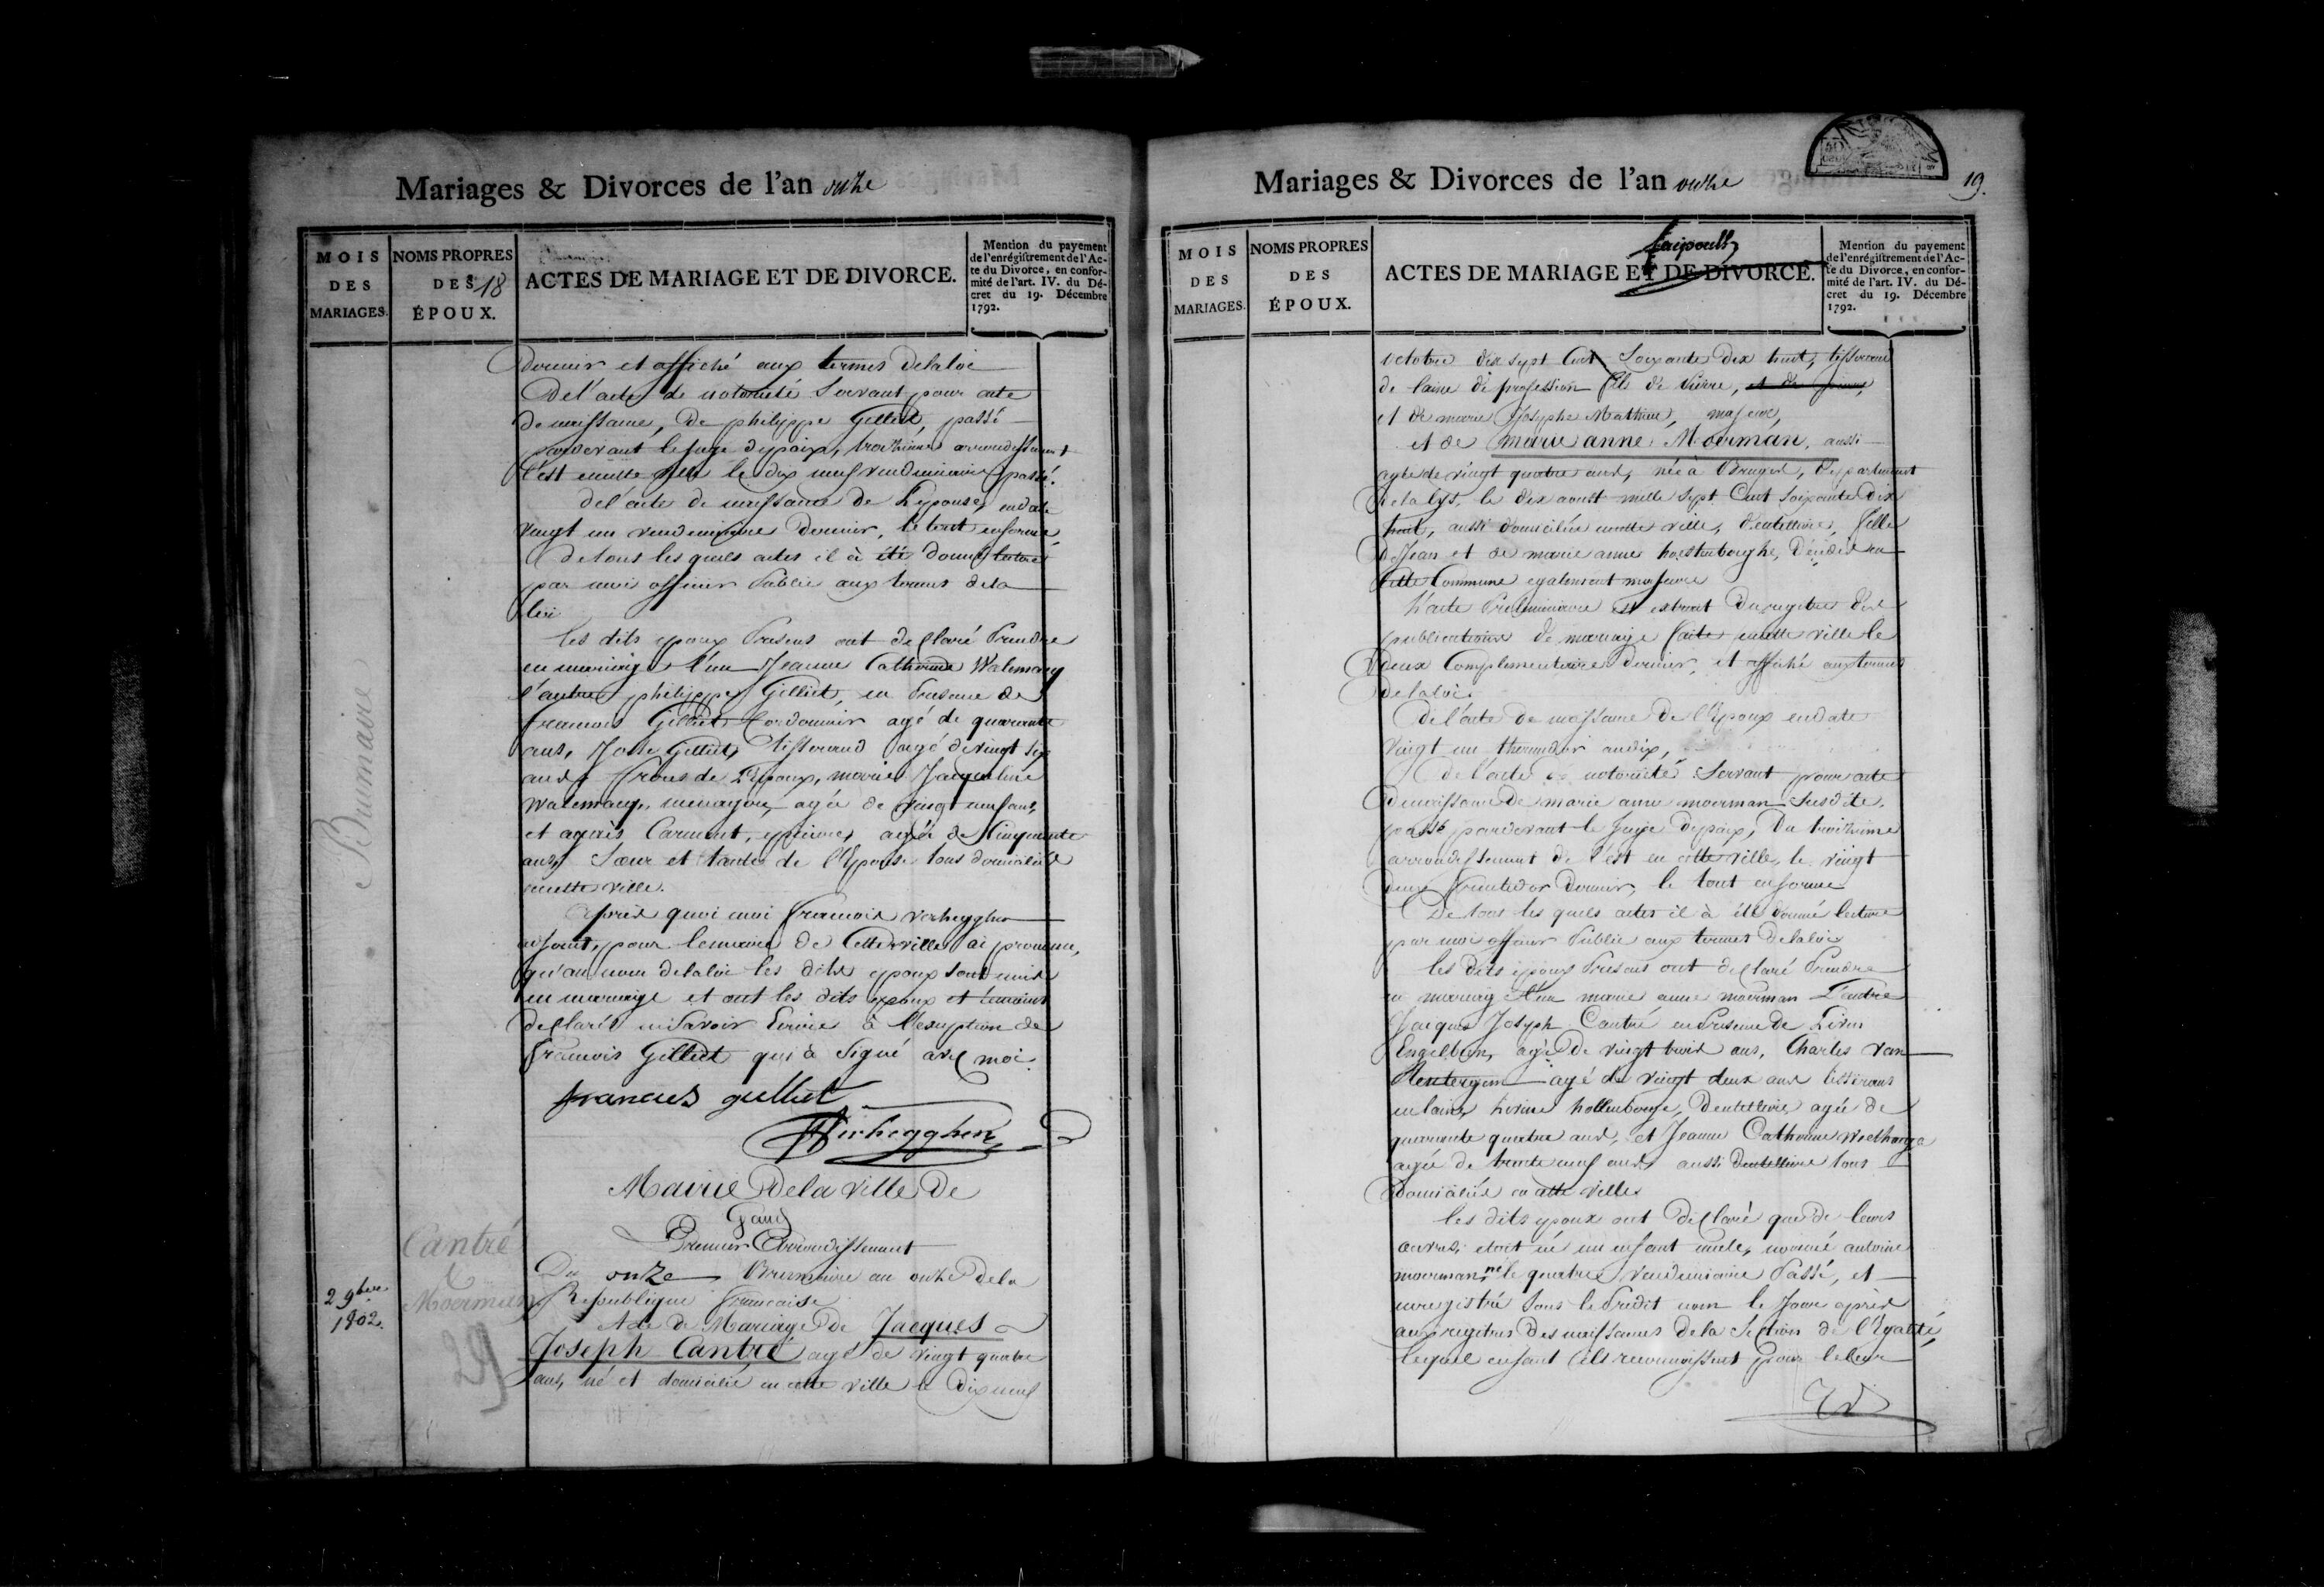 Mariages & Divorces de l'an onze
MOIS
DES
MARIAGES.
NOMS PROPRES
DES
18
ÉPOUX.
ACTES DE MARIAGE ET DE DIVORCE.
Mention du payement
de l'enrégistrement de l'Ac-
te du Divorce, en confor-
mité de l'art. IV. du Dé-
cret du 19. Décembre
1792.
Brumaire
Dernier et affiché aux termes dela loi
De l'acte de notorieté Servant pour acte
De naissance, De philippe Gilliet, passé
pardevant le juge depaix, troisieme arrondissement
l'est le dix neuf vendemiaire passé.
del'acte de naissance de l'épouse, endate
vingt un vendemiaire Dernier, le tout enforme
De tous les quels actes il à été donné lecture
par moi officier Public aux termes dela
loi
les dits epoux Presens ont declaré Prendre
en mariage l'un Jeanne Catherine Walemacq
l'autre philippe Gilliet, en Presence de
francois Gilliet Cordonnier agé de quarante
ans, Josse Gilliet, tisserand agé de vingt six
ans, freres de l'Epoux, marie Jacqueline
Walemacq, menagere, agée de vingt neuf ans,
et agnès Carment, epiciere, agée de Cinquante
ans, Soeur et tante de l'Epouse tous domiciliés
encette ville.
Après quoi moi francois verhegghen
adjoint, pour lemaire de Cette ville ai prononcé,
qu'au nom delaloi les dits epoux sont unis
en mariage et ont les dits epoux et temoins
declarés ne Savoir Ecrire à l'exception de
francois Gilliet qui à Signé avec moi.
francies gilliet
Verhegghen
Mairie Dela ville De
Gand
Premier Arrondissement
Cantré
&
Moerman
2 9bre
1802.
25
Du onze Brumaire an onze Dela
Republique francaise
Acte De Mariage De Jacques
Joseph Cantré agé de vingt quatre
ans, né et domicilié en cette ville le Dix neuf
Mariages & Divorces de l'an onze
19.
MOIS
DES
MARIAGES.
NOMS PROPRES
DES
ÉPOUX.
faipoult
ACTES DE MARIAGE ET DE DIVORCE.
Mention du payement
de l'enrégistrement de l'Ac-
te du Divorce, en confor-
mité de l'art. IV. du Dé-
cret du 19. Décembre
1792.
octobre dix sept Cent Soixante dix huit, tisserand
de laine de profession fils de Pierre,
et de marie Josephe Mathieu, majeur,
et de marie anne Moerman, aussi
agée de vingt quatre ans, née à Bruges, Departement
Dela lys, le dix aoust mille Sept Cent soixante Dix
huit, aussi domiciliée encette ville, Dentelliere, fille
De Jean et de marie anne Decedés en
Cette Commune egalement majeure
L'acte Preliminaire est extrait Du registre des
publications de mariage faite encette ville le
deux Complementaire dernier, et affiché aux termes
delaloi.
De l'acte de naissance de l'Epoux endate
Vingt un thermidor an dix,
de l'acte de notorieté Servant pour acte
De naissance De marie anne moerman Susdite,
passé pardevant le Juge depaix, Du troisieme
arrondissement de l'est en cette ville, le vingt
deux fructidor Dernier, le tout enforme
De tous les quels actes il à été donné lecture
par moi officier Public aux termes delaloi
les Dits epoux Presens ont declaré Prendre
en mariage l'un marie anne moerman l'autre
Jacques Joseph Cantré en Presence De Livin
Engelbien, agé De vingt trois ans, Charles van
Hentergem agé de vingt deux ans tisserans
en laine, Livine hollenbouge, Dentelliere agée de
quarante quatre ans, et Jeanne Catherine
agée de trente neuf ans aussi Dentelliere tous
Domiciliés en cette ville
les dits epoux ont Declaré que de leurs
oeuvres etoit né un enfant mâle, nommé antoine
moerman, né le quatre vendemiaire Passé, et
enregistré sous le Predit nom le Jour après
aux registres Des naissances Dela Section de l'Egalité,
lequel enfant ils reconnoissent pour le leur